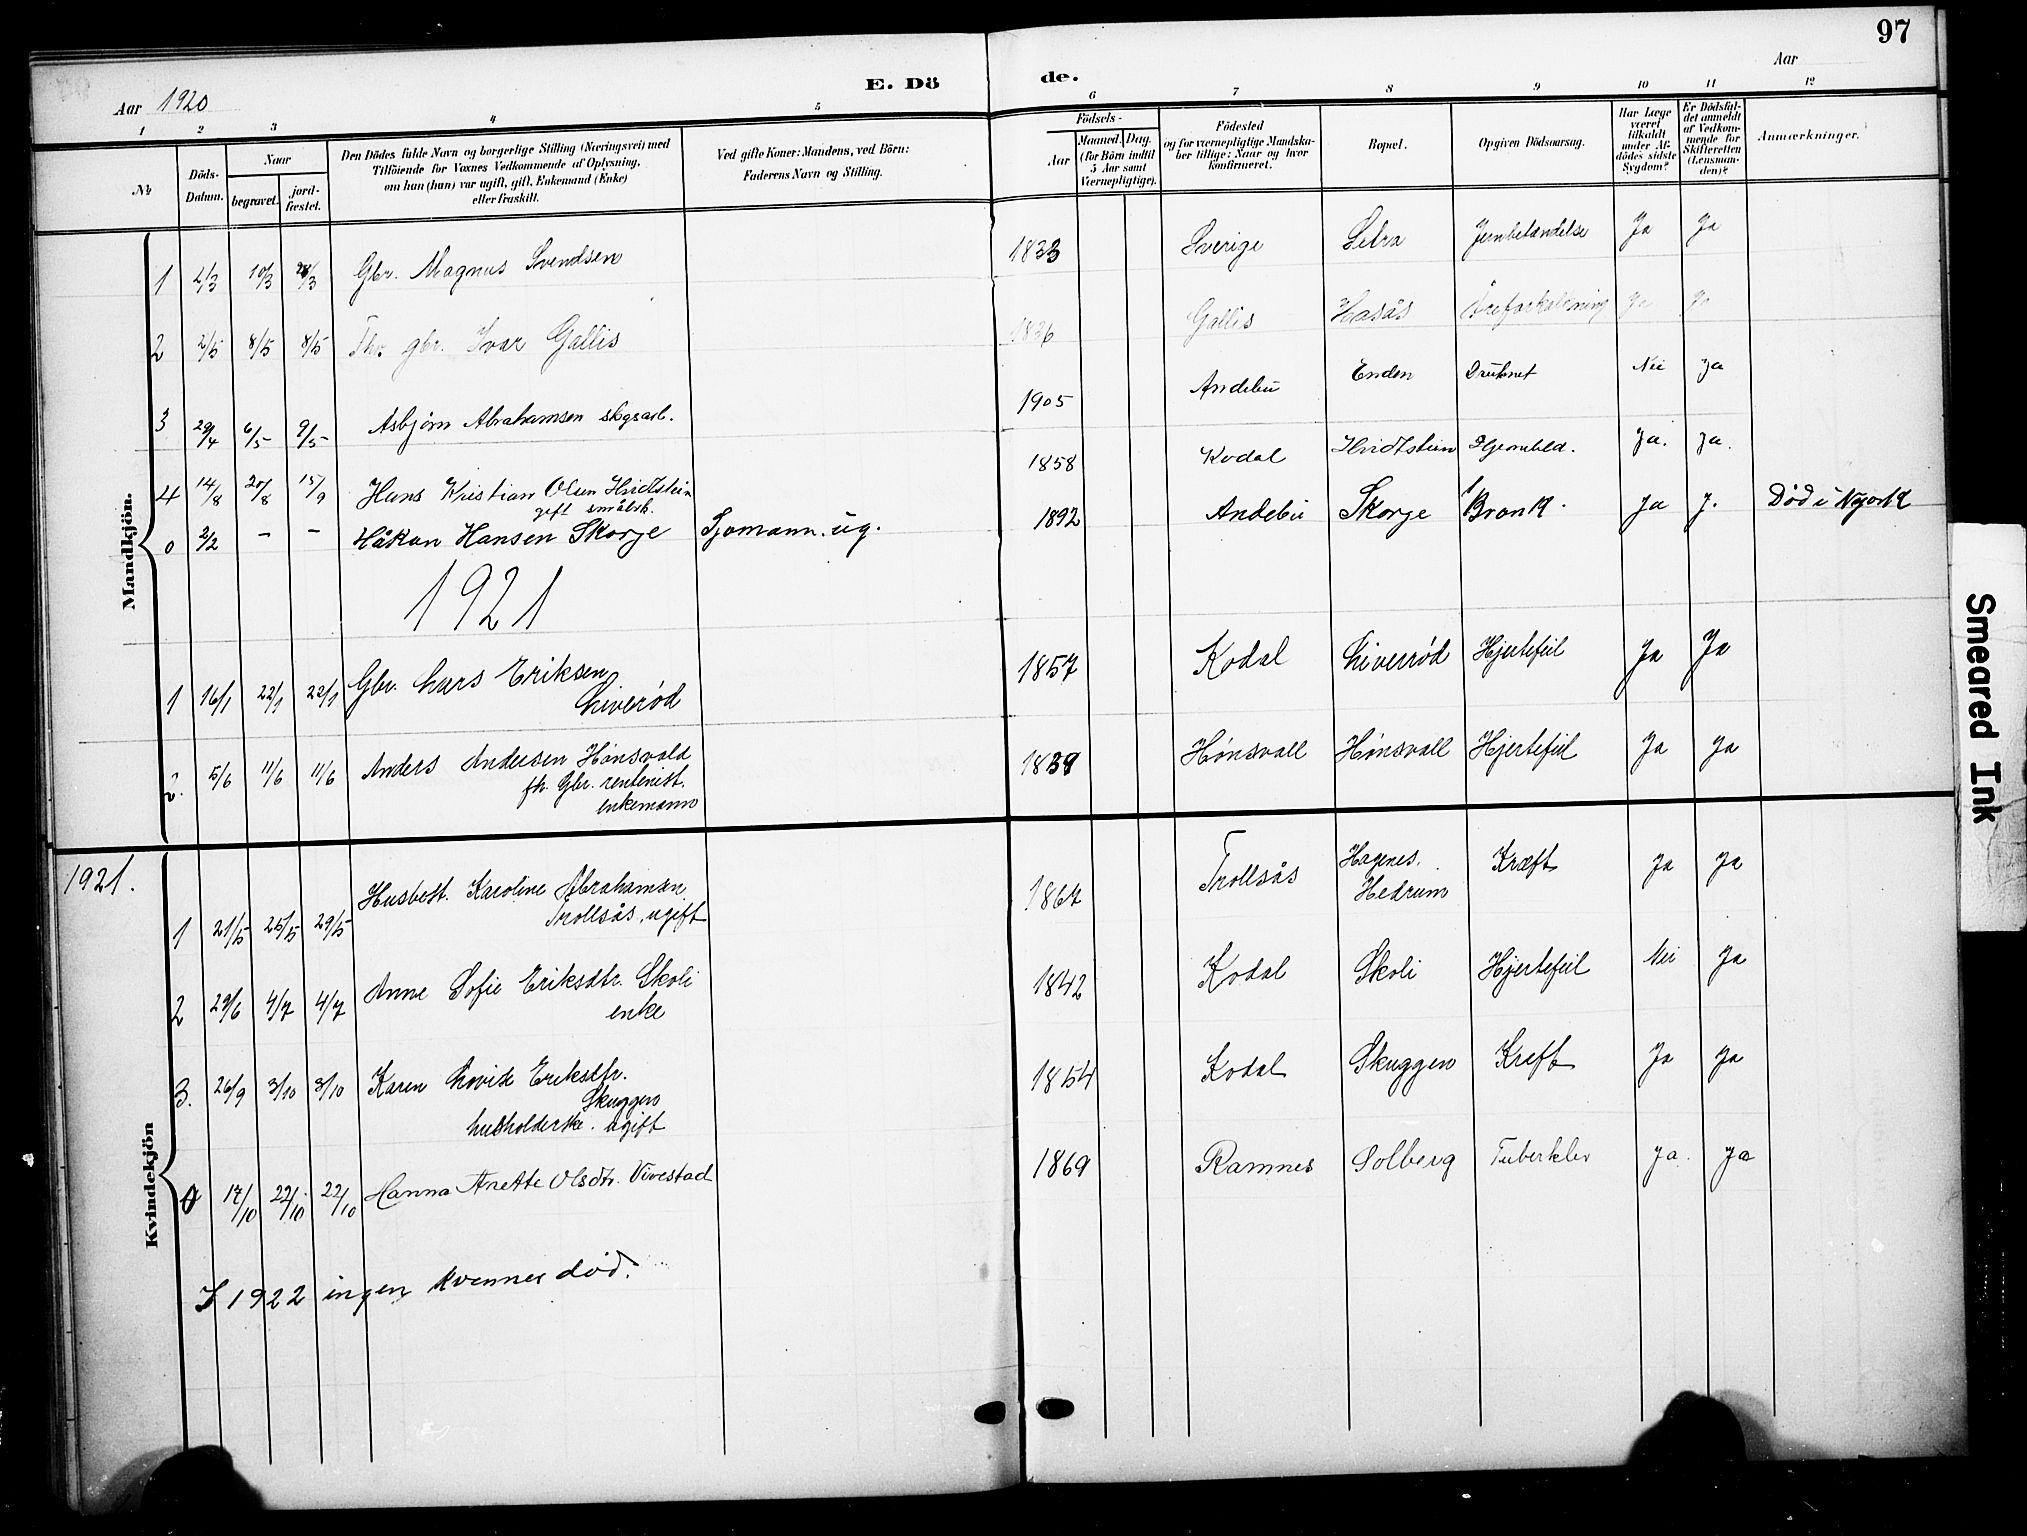 97
E. Dö de.
Aar 1920
Aar
1 2 3 4 5 6 7 8 9 10 11 12
№
Döds-Datum.
Naar
begravet.
jord-fæstet.
Den Dödes fulde Navn og borgerlige Stilling (Næringsvei) med
Tilföiende for Voxnes Vedkommende af Oplysning,
om han (hun) var ugift, gift, Enkemand (Enke)
eller fraskilt.
Ved gifte Koner: Mandens, ved Börn:
Faderens Navn og Stilling.
Födsels-
Aar
Maaned. Dag.
(for Börn indtil
5 Aar samt
Værnepligtige).
Födested
og for værnepligtige Mandska-
ber tillige: Naar og hvor
konfirmeret.
Bopæl.
Opgiven Dödsaarsag.
Har Læge
været
tilkaldt
under Af-
dödes sidste
Sygdom?
Er Dödsfal-
det anmeldt
af Vedkom-
mende for
Skifteretten
(Lensman-
den)?
Anmærkninger.
Mandkjön.
1 2/3 10/3 Gbr. Magnus Svendsen 1833 Sverige Letra Ja Ja
2 2/5 8/5 8/5 Fhv. gbr. Ivar Gallis 1836 Gallis Hasås Åreforkalkning Ja Ja
3 29/4 6/5 9/5 Asbjørn Abrahamsen skogsarb. 1905 Andebu Enden Druknet Nei Ja
4 14/8 20/8 15/9 Hans Kristian Olsen Hvidtstein 1858 Kodal Hvidtstein Ja. Ja.
gift småbrk.
0 2/2 - - Håkon Hansen Skorge Sjomann. ug. 1892 Andebu Skorge Bronk. Ja J. Død i Nyork
1921
1 16/1 22/1 22/1 Gbr. Lars Eriksen 1857 Kodal Liverød Hjertefeil Ja Ja
Liverød
2. 5/6 11/6 11/6 Anders Andersen Hønsvald 1839 Hønsvall Hønsvall Hjertefeil Ja Ja
fh. Gbr. rentenist.
enkemann
1921.
Kvindekjön
1 21/5 25/5 29/5 Husbest. Karoline Abrahamsen 1867 Trollsås Hagenes, Hedrum Kræft Ja Ja
Trollsås, ugift
2 29/6 4/7 4/7 Anne Sofie Eriksdtr. Skoli 1842 Kodal Skoli Hjertefeil Nei Ja
enke
3. 26/9 3/10 3/10 Karen Lovise Eriksdtr. 1854 Kodal Skuggen Kreft Ja Ja
Skuggen
husholderske. ugift
0 17/10 22/10 22/10 Hanna Anette Olsdtr. Vivestad 1869 Ramnes Solberg Tuberkler Ja. Ja
I 1922 ingen kvennes død.
Smeared Ink